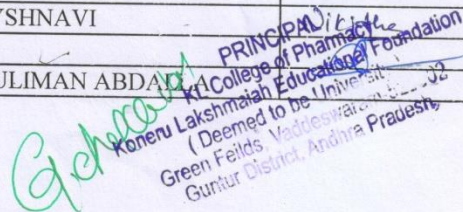 YSHNAVI
ULIMAN ABDALLA
PRINCIPAL
KL College of Pharmacy
Koneru Lakshmaiah Educational Foundation
(Deemed to be University)
Green Feilds, Vaddeswaram
Guntur District, Andhra Pradesh,